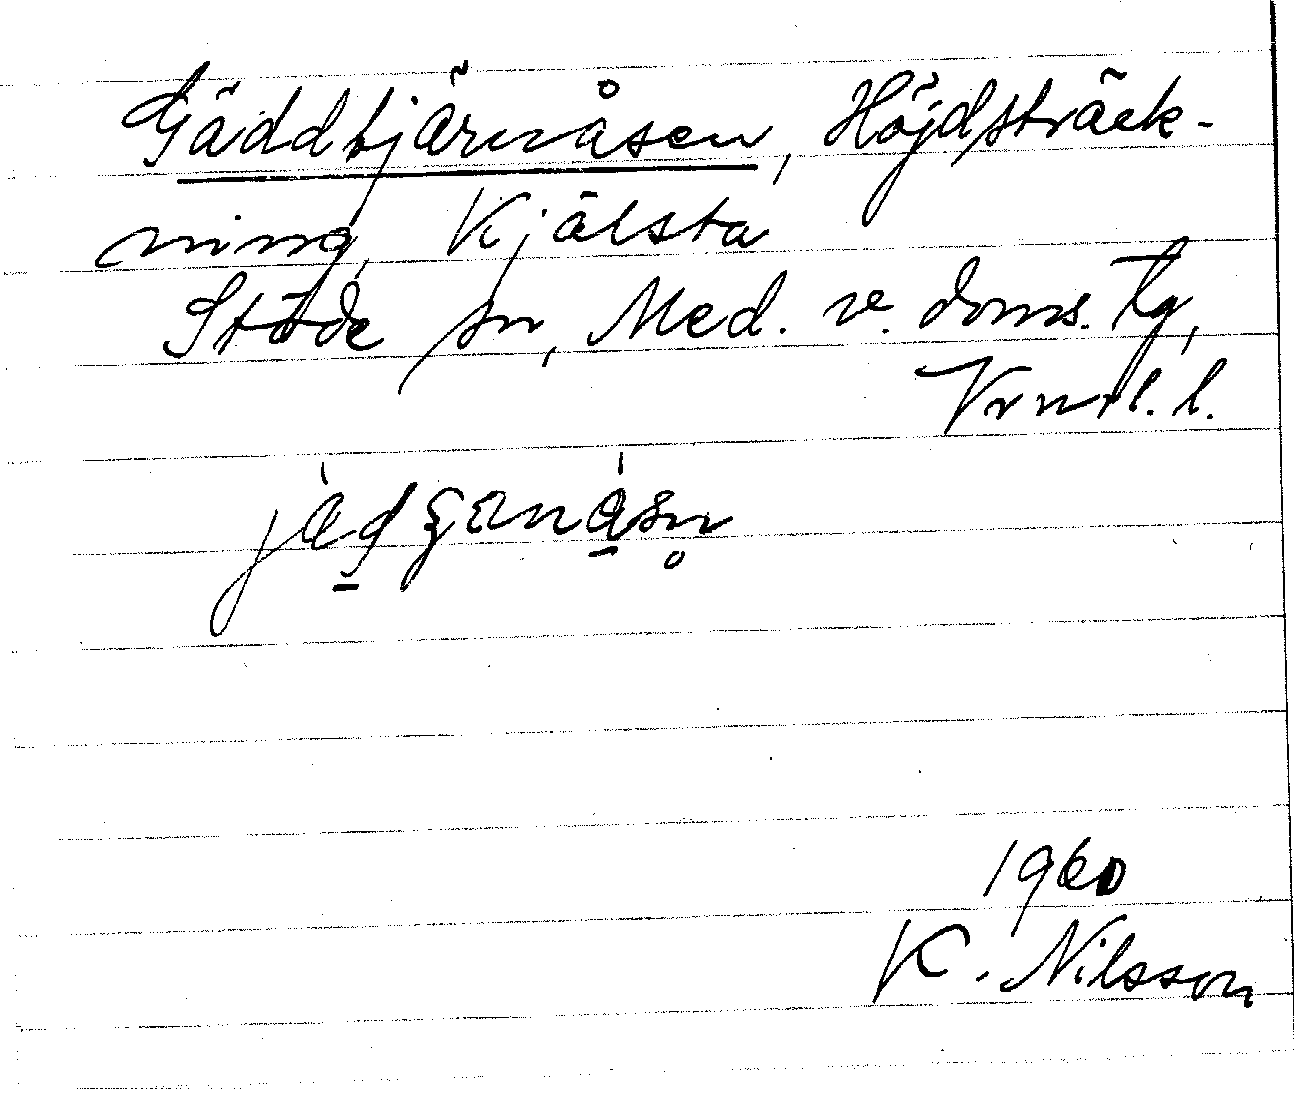 Gäddtjärnåsen, Höjdsträck-
ning, Kjälsta
Stöde sn, Med. v. doms. tg,
Vrnl. l.
1960
K. Nilsson